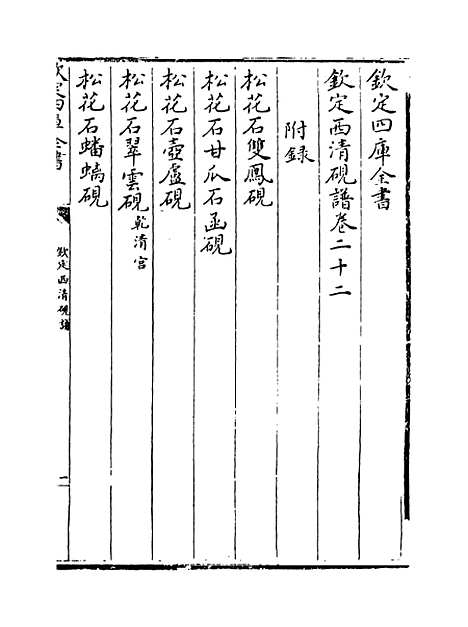 欽定四庫全書
欽定西清硯譜卷二十二
附錄
松花石雙鳳硯
松花石甘瓜石函硯
松花石壺盧硯
松花石翠雲硯 乾清宮
松花石蟠螭硯
欽定四庫全書
欽定西清硯譜
二